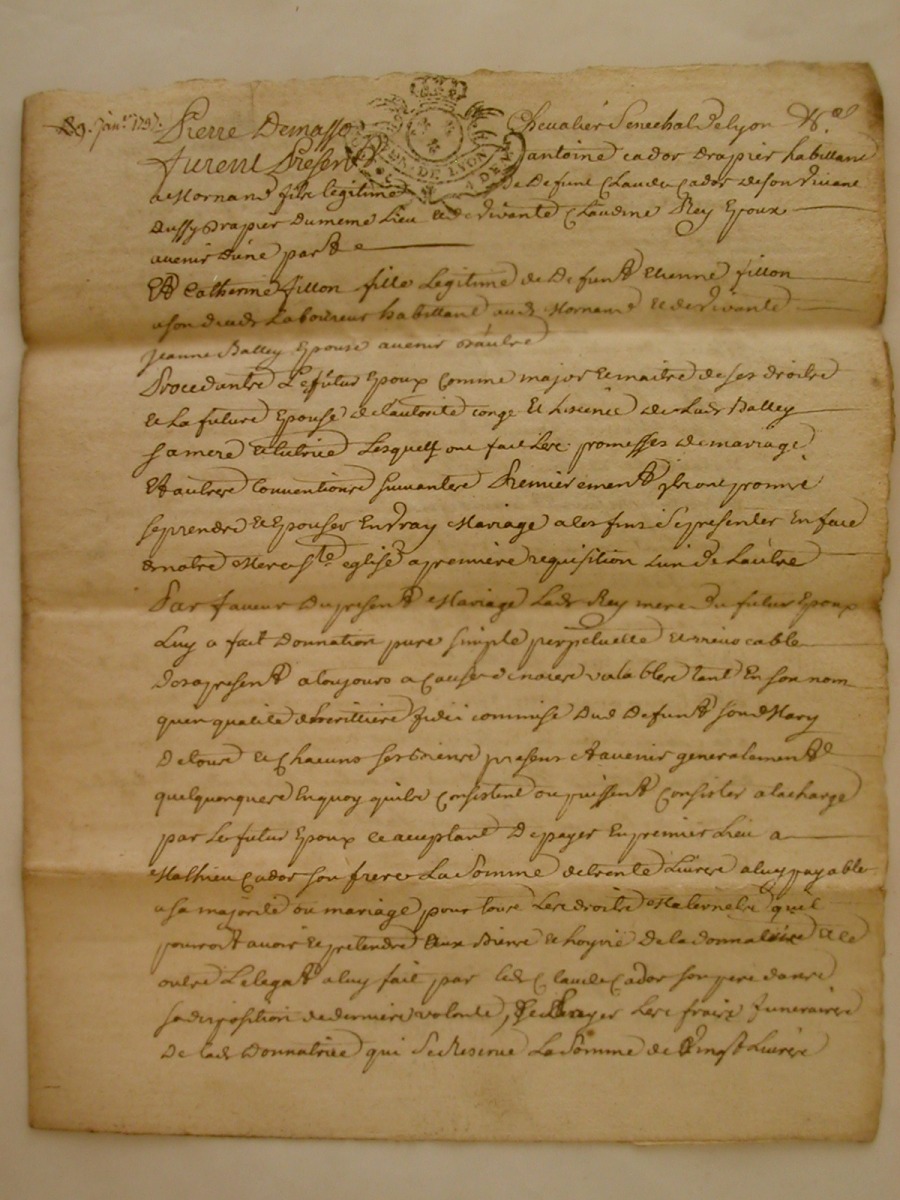 Pierre Demasso Chevalier Senechal de Lyon
furent Presents antoine cador drapier habittant
a Mornand fils legitime De Defunt Claude Cador de son vivant
aussy drapier du meme Lieu et de vivante Claudine Rey Epoux
avenir d'une part
Et Catherine fillon fille Legitime de Defunt Etienne fillon
a son vivant Laboureur habittant aud. Mornand et de vivante
jeanne Balley Epouse avenir d'autre
Procedants Le futur Epoux comme major et maitre de ses droits
et La future Epouse de l'autorité congé et Licence de Lad. Balley
sa mere et tutrice Lesquels ont fait Les promesses de mariage
Et autres Conventions suivantes Premierement ils ont promis
se prendre et Epouser En vray Mariage a les fins se presenter En face
de notre Mere Ste. eglise a premiere requisition L'un de L'autre
Par faveur Du present Mariage Lad. Rey mere du futur Epoux
Luy a fait Donnation pure simple perpetuelle et irrevocable
Des apresent a toujours a Cause de noces valables tant En son nom
qu'en qualité d'heritiere fideicommise Dud. Defunt son Mary
De tous et Chacuns ses Biens presens et avenir generalement
quelquonques En quoy qu'ils Consistent ou puissent Consister a la charge
par Le futur Epoux ce acceptant De payer En premier Lieu a
Mathieu Cador son frere La Somme de trente Livres a luy payable
a sa majorité ou mariage pour tous Les droits Maternels qu'il
pourroit avoir et pretendre aux Biens et hoyrie De la donnatrice et ce
outre Le legat a luy fait par led. Claude Cador son pere dans
sa disposition de derniere volonté, De payer Les fraix funeraires
De lad. Donnatrice qui se Reserve La Somme de vingt Livres